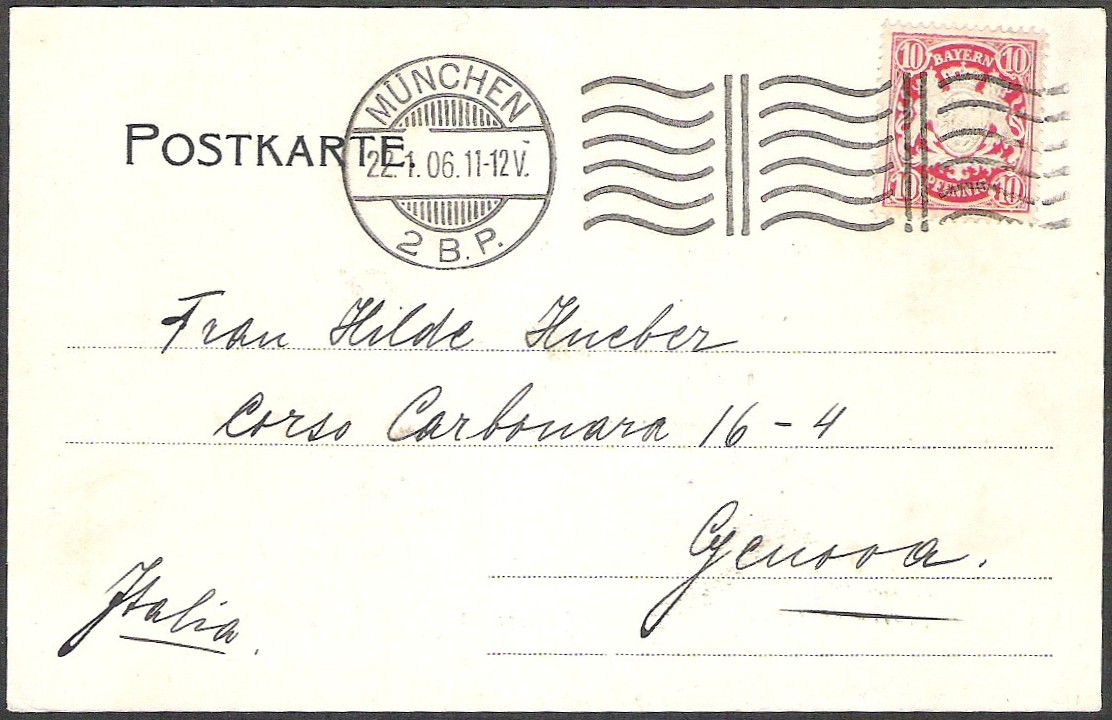 10 BAYERN 10
MÜNCHEN
POSTKARTE.
22.1.06.11-12V.
10 PFENNIG 10
2 B.P.
Frau Hilde Hueber
Corso Carbonara 16-4
Genova.
Italia.